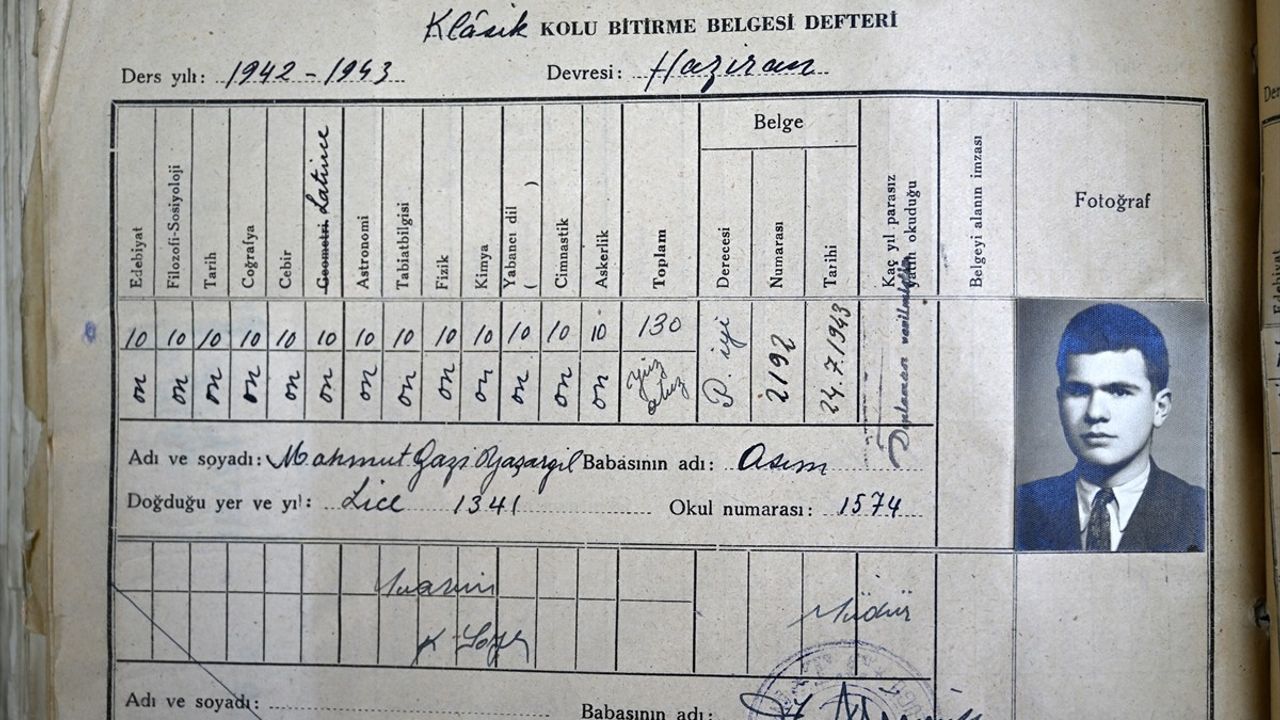 Klâsik KOLU BİTİRME BELGESİ DEFTERİ
Ders yılı: 1942-1943 Devresi: Haziran
Edebiyat
Filozofi-Sosiyoloji
Tarih
Coğrafya
Cebir
Geometri Latince
Astronomi
Tabiatbilgisi
Fizik
Kimya
Yabancı dil ( )
Cimnastik
Askerlik
Toplam
Belge
Derecesi
Numarası
Tarihi
Kaç yıl parasız yatılı okuduğu
Belgeyi alanın imzası
Fotoğraf
10 10 10 10 10 10 10 10 10 10 10 10 10 130
on on on on on on on on on on on on on yüz otuz
P. iyi
2192
24.7.1943
Adı ve soyadı: Mahmut Gazi Yaşargil Babasının adı: Asım
Doğduğu yer ve yıl: Lice 1341 Okul numarası: 1574
Muavin
Müdür
Adı ve soyadı: Babasının adı:
Edebiyat